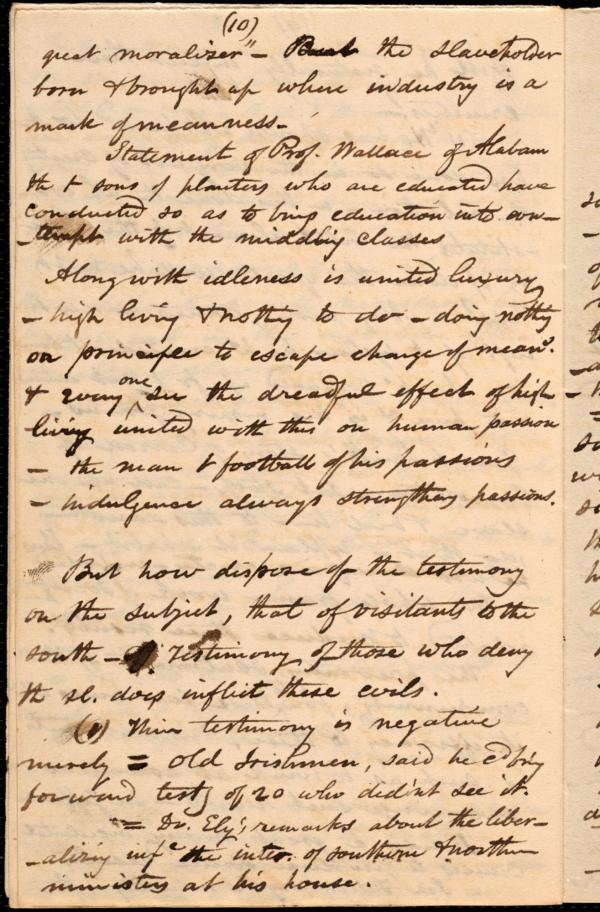 (10)
great moralizer" - But the slaveholder
born & brought up where industry is a
mark of meanness -
Statement of Prof. Wallace of Alabam
th t sons of planters who are educated have
conducted so as to bring education into con-
-tempt with the middling classes
Along with idleness is united luxury
- high living & nothing to do - doing nothing
on principle to escape charge of mean.
& every one see the dreadful effect of high
living united with this on human passion
- the man t football of his passions
- indulgence always strengthens passions.
But how dispose of the testimony
on the subject, that of visitants to the
south - Testimony of those who deny
th sl. does inflict these evils.
(1) Their testimony is negative
merely = old Irishmen, said he cd bring
forward testy of 20 who didn't see it.
= Dr. Ely's remarks about the liber-
-alizing infe the inter. of southern & northern
ministers at his house.